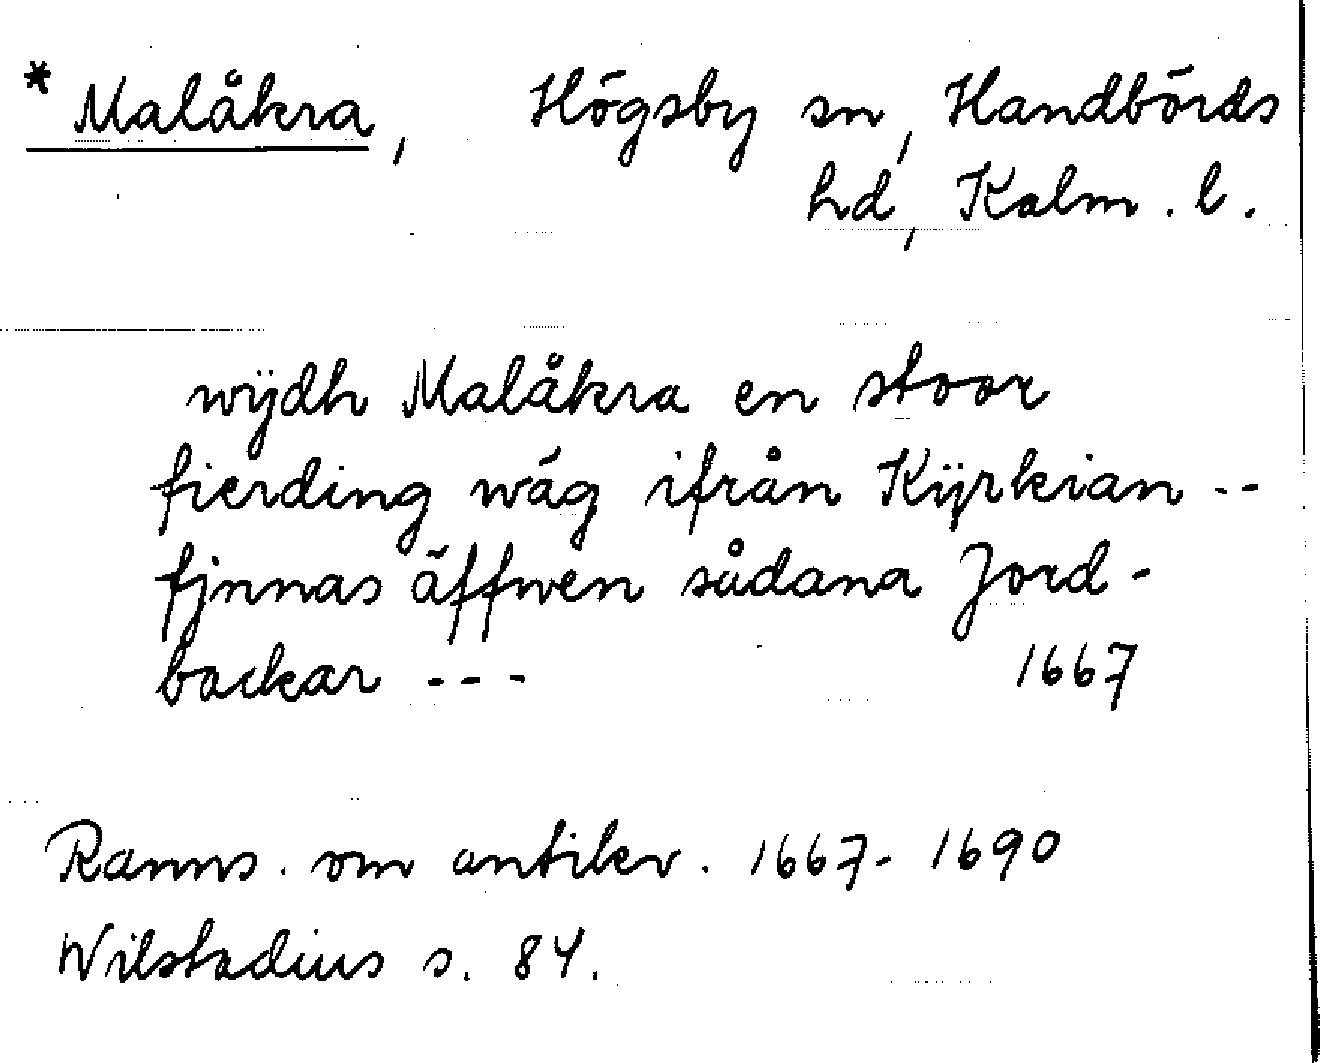 * Malåkra, Högsby sn, Handbörds
hd, Kalm. l.
wÿdh Malåkra en stoor
fierding wäg ifrån Kÿrkian --
fjnnas äffwen sådana Jord-
backar --- 1667
Ranns. om antikv. 1667-1690
Wilstadius s. 84.